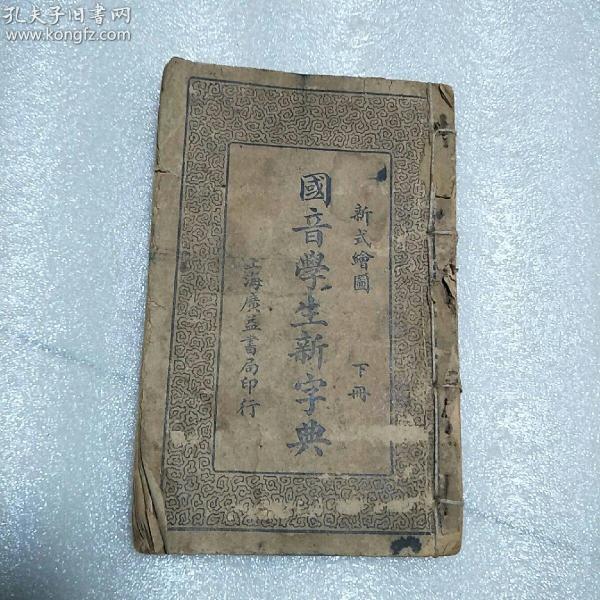 孔夫子旧书网
www.kongfz.com
新式繪圖 下冊
國音學生新字典
上海廣益書局印行